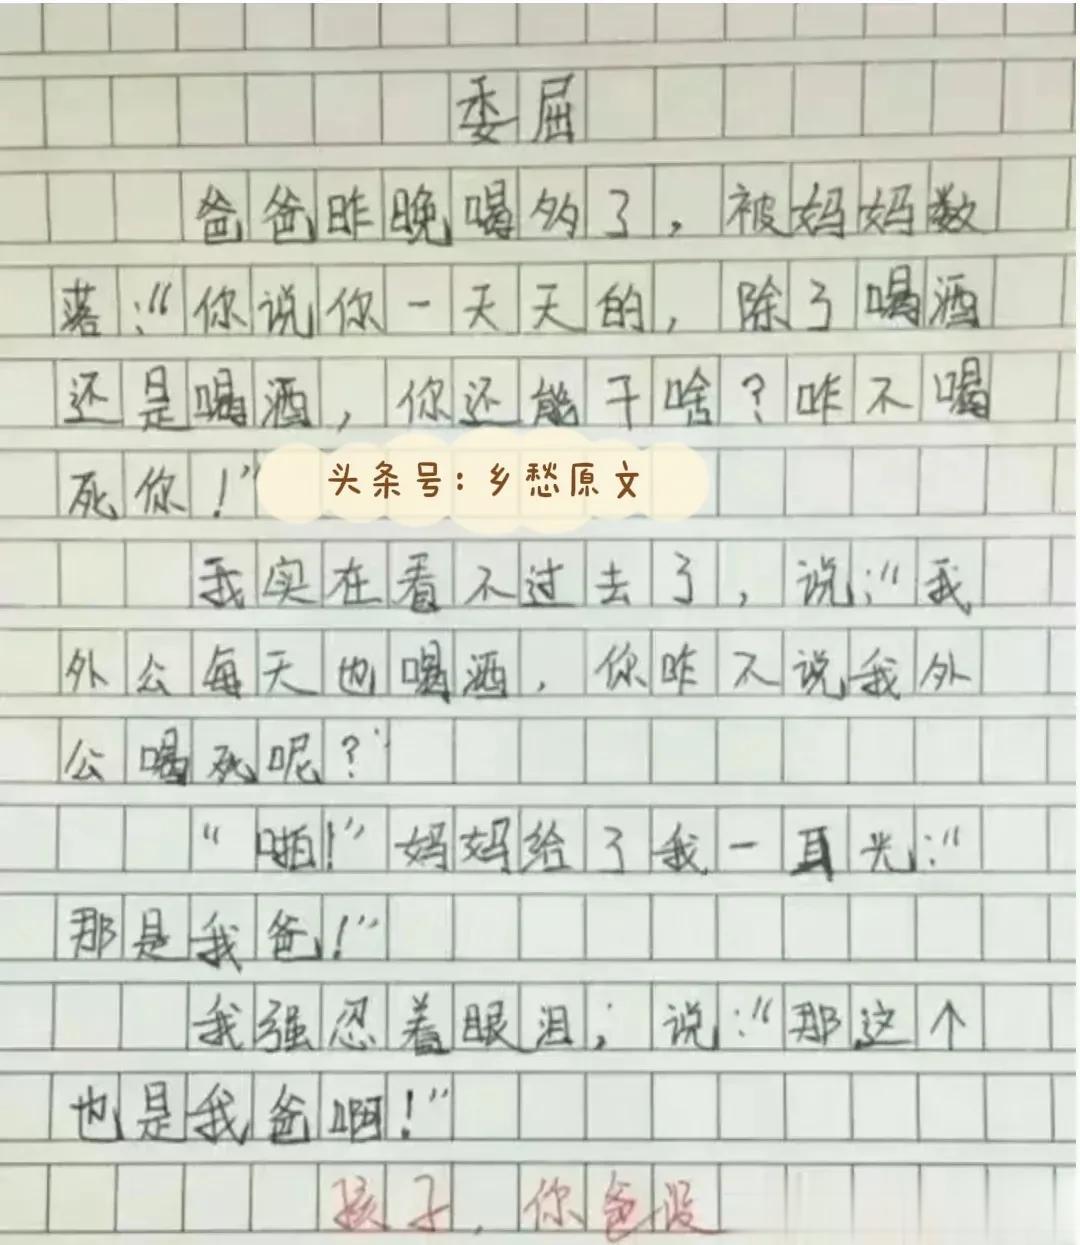 委屈
爸爸昨晚喝多了，被妈妈数
落:“你说你一天天的，除了喝酒
还是喝酒，你还能干啥？咋不喝
死你！”
头条号:乡愁原文
我实在看不过去了，说:“我
外公每天也喝酒，你咋不说我外
公喝死呢？”
“啪!”妈妈给了我一耳光:“
那是我爸！”
我强忍着眼泪，说:“那这个
也是我爸啊！”
孩子，你爸没